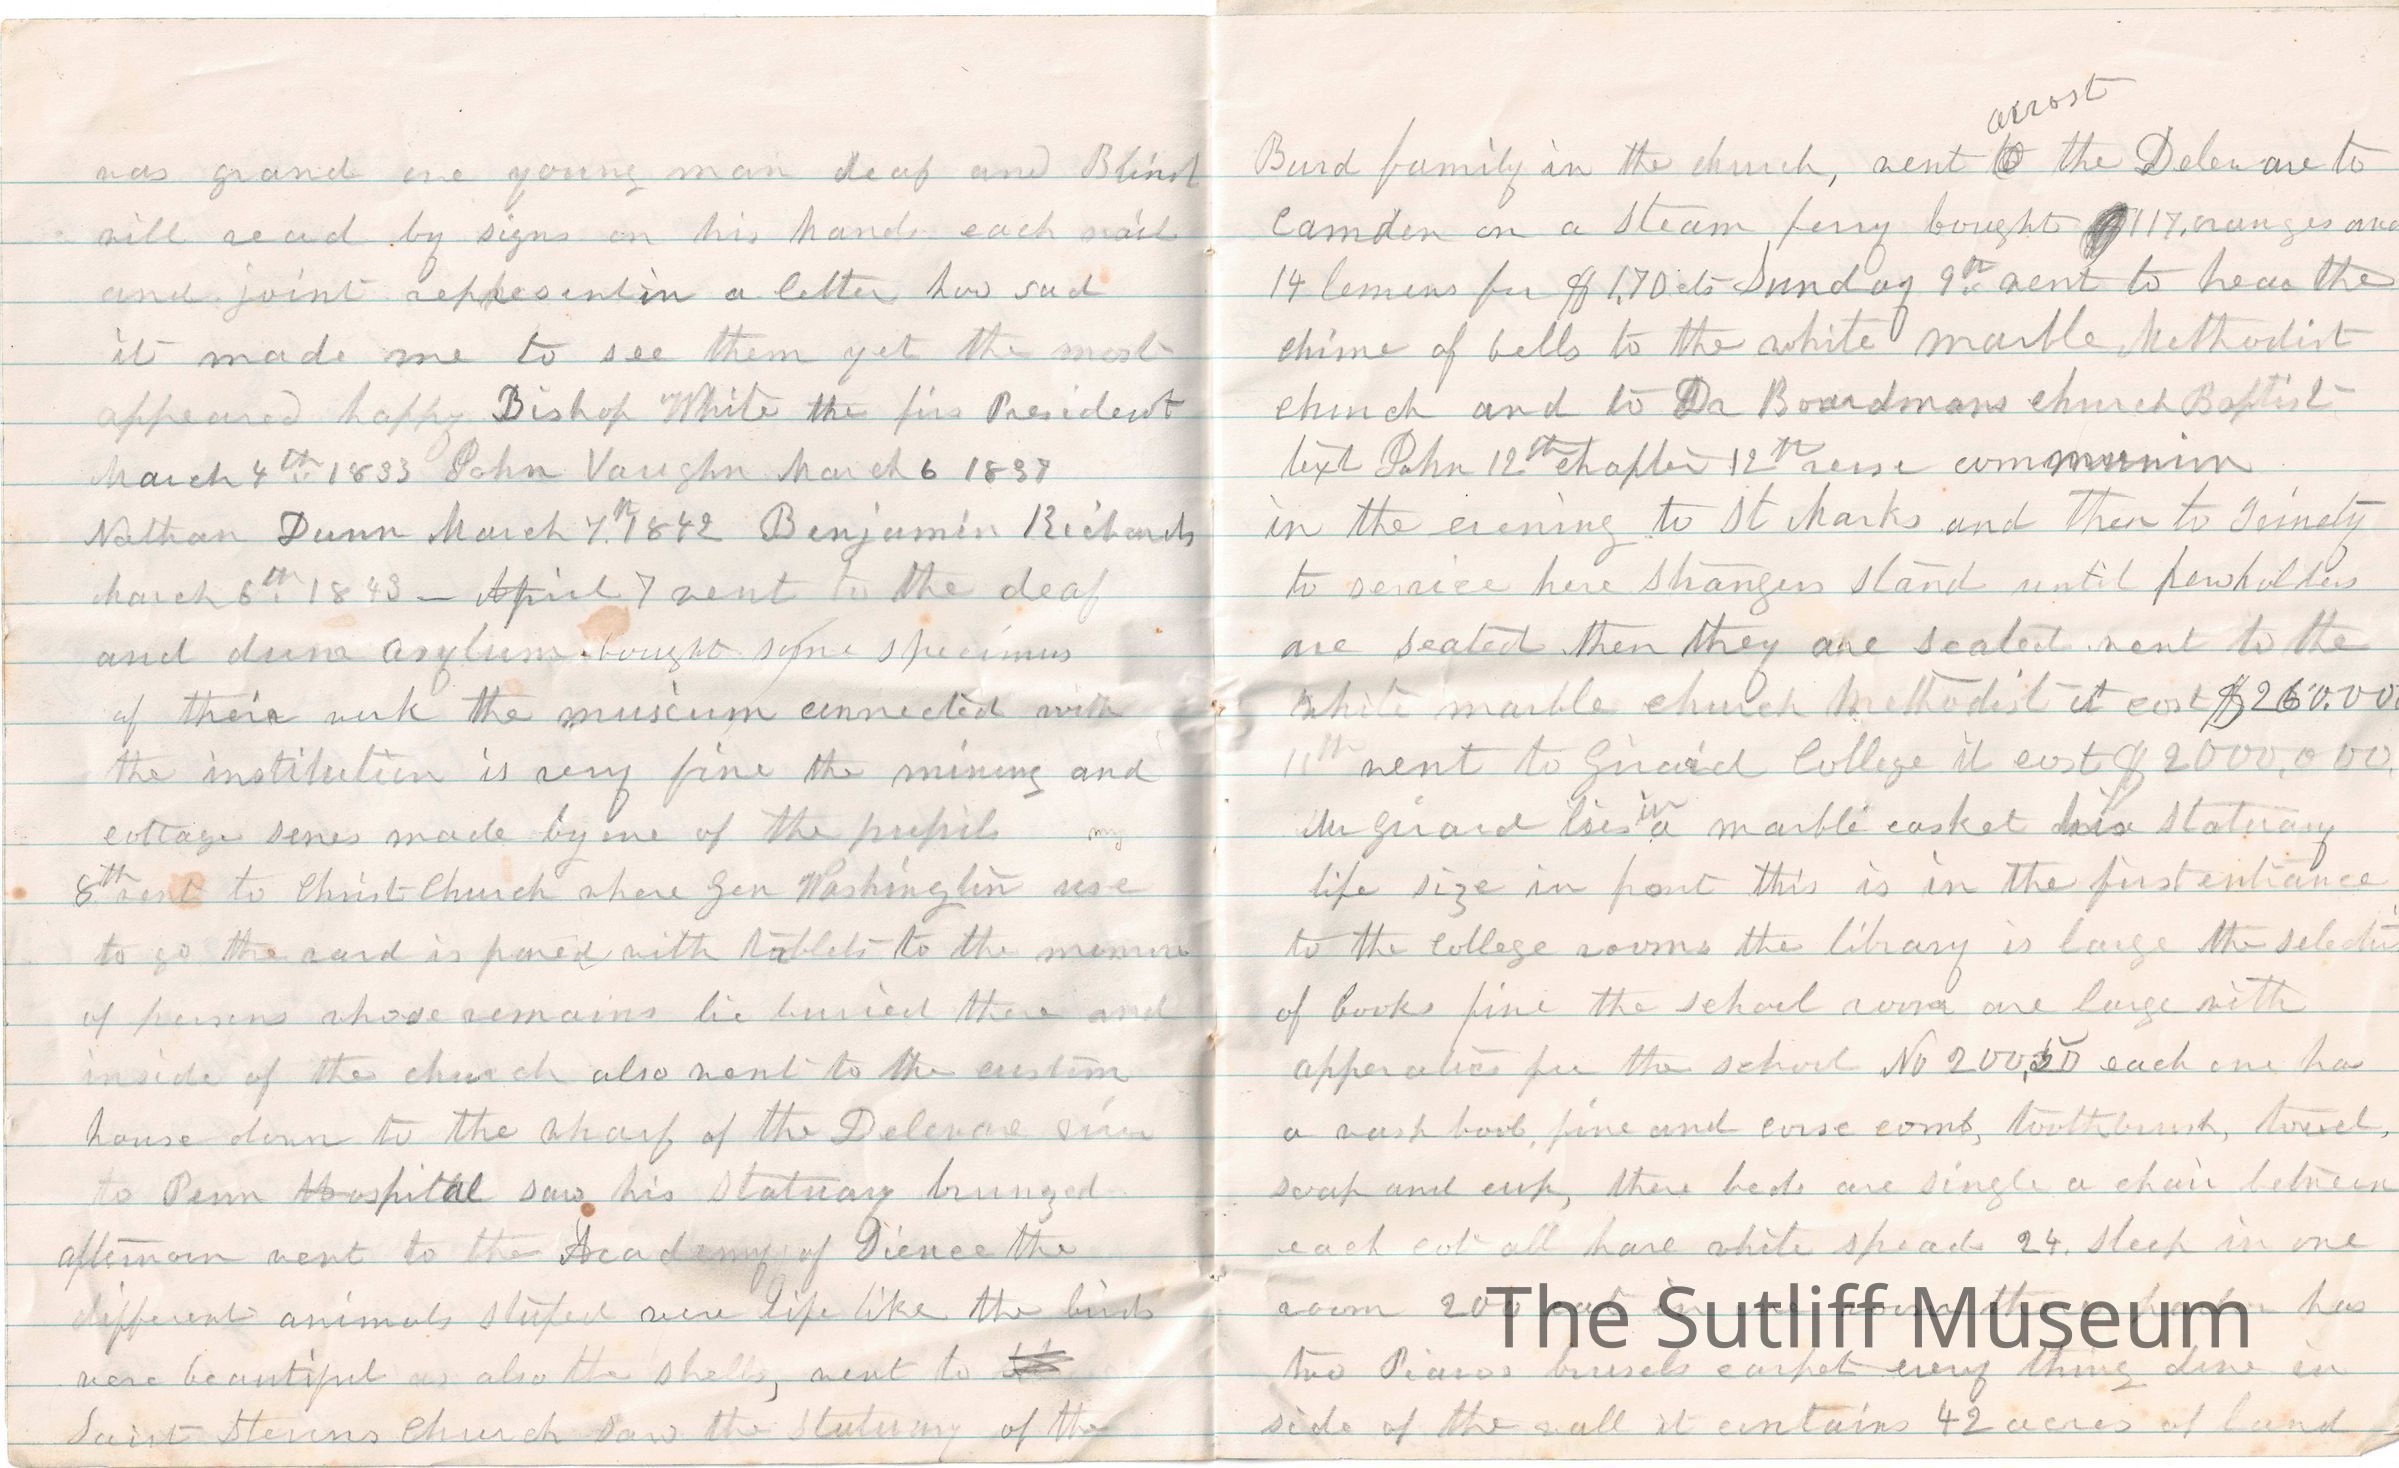 was grand one young man deaf and Blind
will read by signs on his hands each nail
and joint representin a letter how sad
it made me to see them yet the most
appeared happy Bishop White the firs President
March 4th 1833 John Vaughn March 6 1837
Nathan Dunn March 7th 1842 Benjamin Richards
March 6th 1843 — April 7 went to the deaf
and dum asylum bought some specimus
of their work the museum connected with
the institution is very fine the mining and
cottage senes made by one of the pupils my
8th went to Christ Church where Gen Washington use
to go the yard is paved with tablets to the memore
of persons whose remains lie buried there and
inside of the church also went to the custom
house down to the wharf of the Delevare
to Penn Hospital saw his statuary brunzed
afternoon went to the Academy of Sience the
different animals stufed were life like the birds
were beautiful as also the shells, went to
Saint Stevens Church saw the statuary of the
arrost
Burd family in the church, went the Deleware to
Camden on a steam ferry bought 117, oranges and
14 lemens for $1,70 cts Sunday 9th went to hear the
chime of bells to the white marble Methodist
church and to Dr Boardmans church Baptist
text John 12th chapter 12th verse communion
in the evening to St Marks and then to
to service here strangers stand until pewholders
are seated then they are seated went to the
white marble church Methodist it cost
11th went to Girard College it cost $2000,000,
Mr Girard lies in a marble casket his statuary
life size in front this is in the first entrance
to the College rooms the library is large the selection
of books fine the school rooms are large with
apperatus for the school No each one has
a wash bool, fine and corse comb, toothbrush, towel,
soap and cup, there beds are single a chair between
each cot all have white spreads 24. sleep in one
room 200 eat in one room the has
two Pianos brusels carpet every thing done in
side of the wall it contains 42 acres of land
The Sutliff Museum